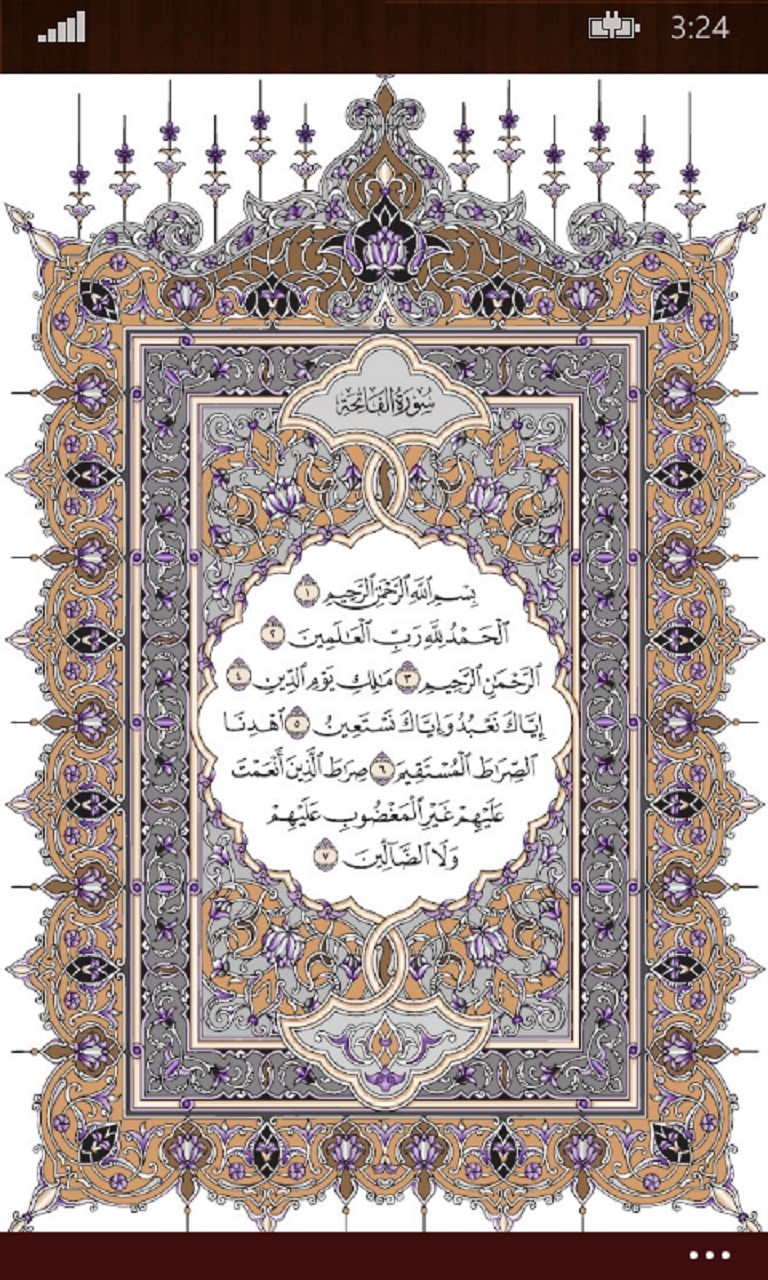 3:24
سُورَةُ الفَاتِحَةِ
بِسْمِ ٱللَّهِ ٱلرَّحْمَٰنِ ٱلرَّحِيمِ ١
ٱلْحَمْدُ لِلَّهِ رَبِّ ٱلْعَٰلَمِينَ ٢
ٱلرَّحْمَٰنِ ٱلرَّحِيمِ ٣ مَٰلِكِ يَوْمِ ٱلدِّينِ ٤
إِيَّاكَ نَعْبُدُ وَإِيَّاكَ نَسْتَعِينُ ٥ ٱهْدِنَا
ٱلصِّرَٰطَ ٱلْمُسْتَقِيمَ ٦ صِرَٰطَ ٱلَّذِينَ أَنْعَمْتَ
عَلَيْهِمْ غَيْرِ ٱلْمَغْضُوبِ عَلَيْهِمْ
وَلَا ٱلضَّآلِّينَ ٧